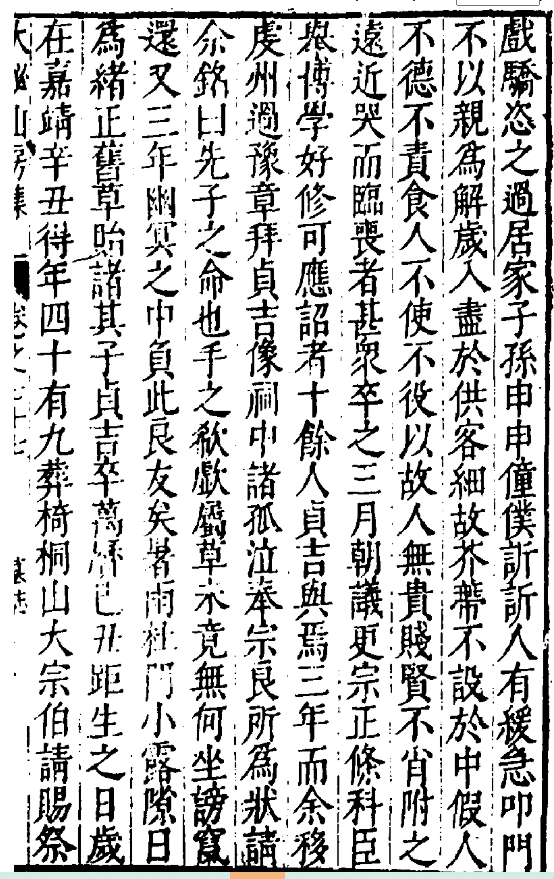 戲驕恣之過居家子孫申申僮僕訢訢人有緩急叩門
不以親為解歲入盡於供客細故芥蔕不設於中假人
不德不責食人不使不役以故人無貴賤賢不肖附之
遠近哭而臨喪者甚衆卒之三月朝議更宗正條科臣
舉博學好修可應詔者十餘人貞吉與焉三年而余移
虔州過豫章拜貞吉像祠中諸孤泣奉宗良所為狀請
余銘曰先子之命也手之欷歔屬草未竟無何坐謗竄
還又三年幽冥之中負此良友矣暑雨杜門小露隙日
為緒正舊草貽諸其子貞吉卒萬曆己丑距生之日歲
在嘉靖辛丑得年四十有九葬椅桐山大宗伯請賜祭
山房集 卷之 十七 墓誌